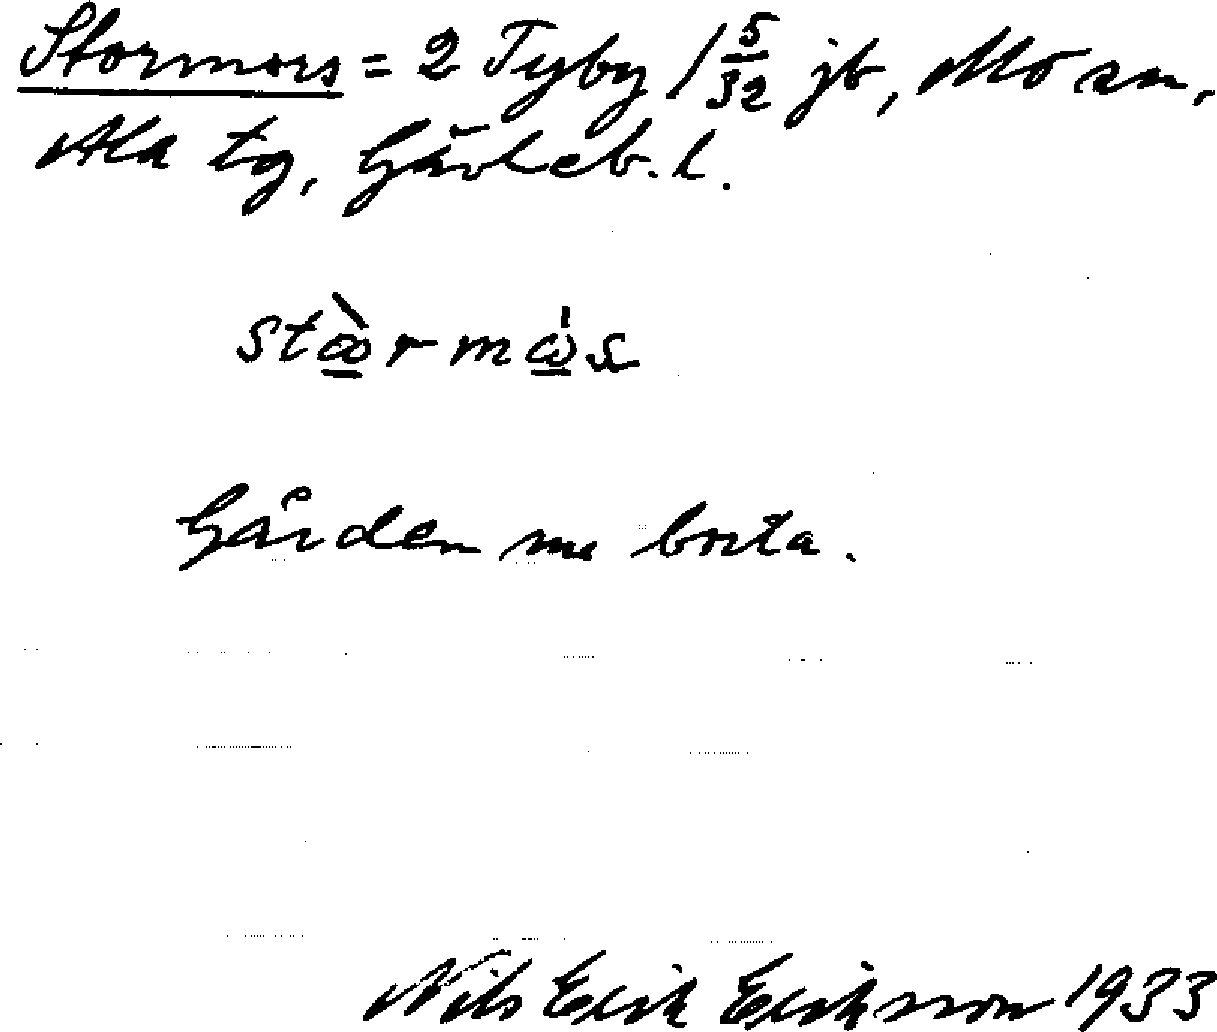 Stormors = 2 Tyby 1 5/32 jb, Mo sn,
Ala tg, Gävleb. l.
stꞷ̀rmꞷ́s
Gården nu borta.
Nils Erik Eriksson 1933